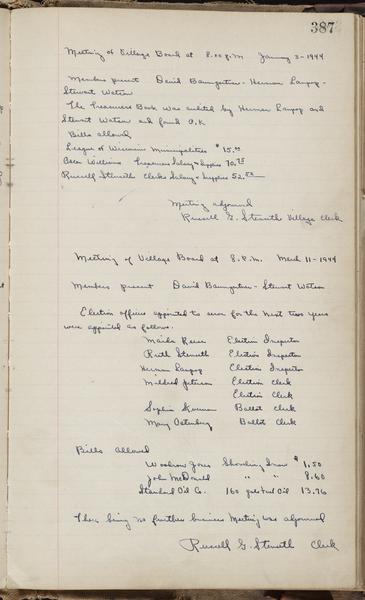 387
Meeting of Village Board at 8.00 P.M January 3-1944
Members present David Baumgarten - Herman
Stewart Watson
The Treasurers Book was audited by Herman and
Stewart Watson and found O.K
Bills allowed
League of Wisconsin Municipalities $15.00
Williams Treasurers Salary & Supplies 70.75
Russell Clerks Salary & Supplies 52.
Meeting adjourned
Russell G. Village Clerk
Meeting of Village Board at 8. P.M. March 11-1944
Members present David Baumgarten - Stewart Watson
Election officers appointed to serve for the next two years
were appointed as follows.
Election Inspector
Ruth Election Inspector
Herman Election Inspector
Mildred Peterson Election Clerk
Election Clerk
Sophie Ballot Clerk
Mary Ballot Clerk
Bills allowed
Woodrow Jones Shoveling Snow $1.50
John McDonald " " 8.60
Standard Oil Co. 160 gals Fuel Oil 13.76
There being no further business Meeting was adjourned
Russell G. Clerk